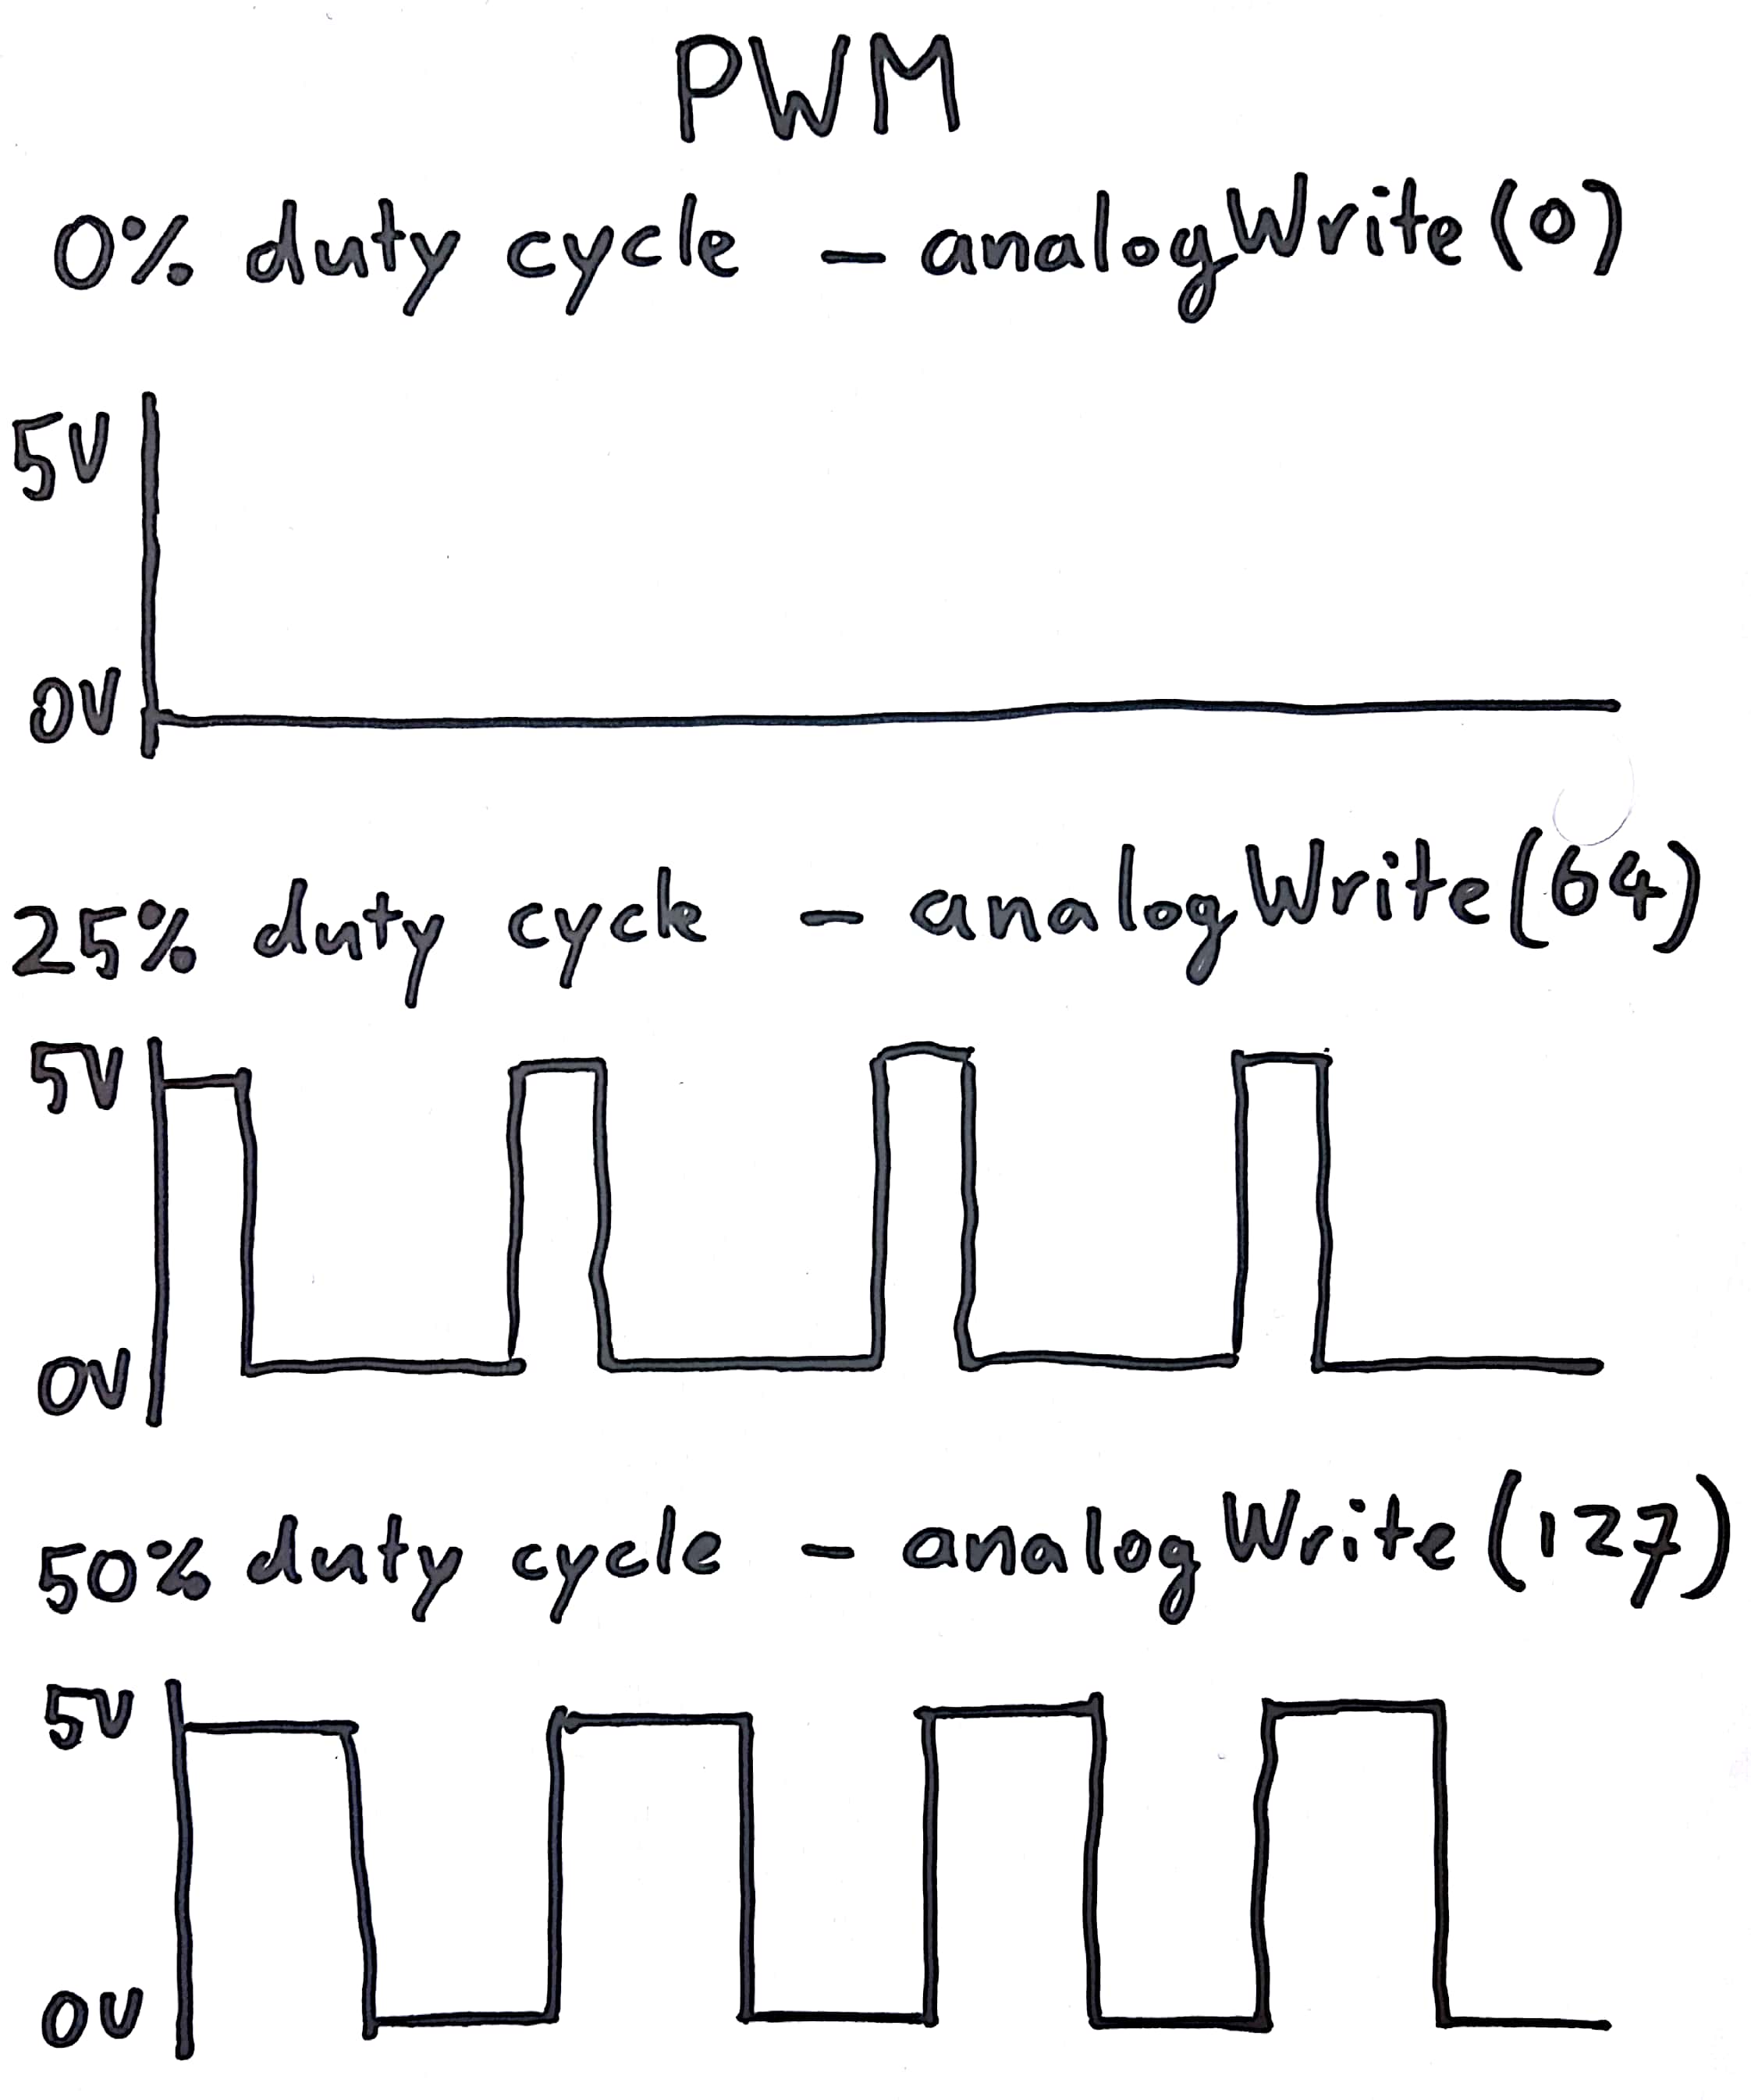 PWM
0% duty cycle - analogWrite(0)
5V
0V
25% duty cycle - analogWrite(64)
5V
0V
50% duty cycle - analogWrite(127)
5V
0V